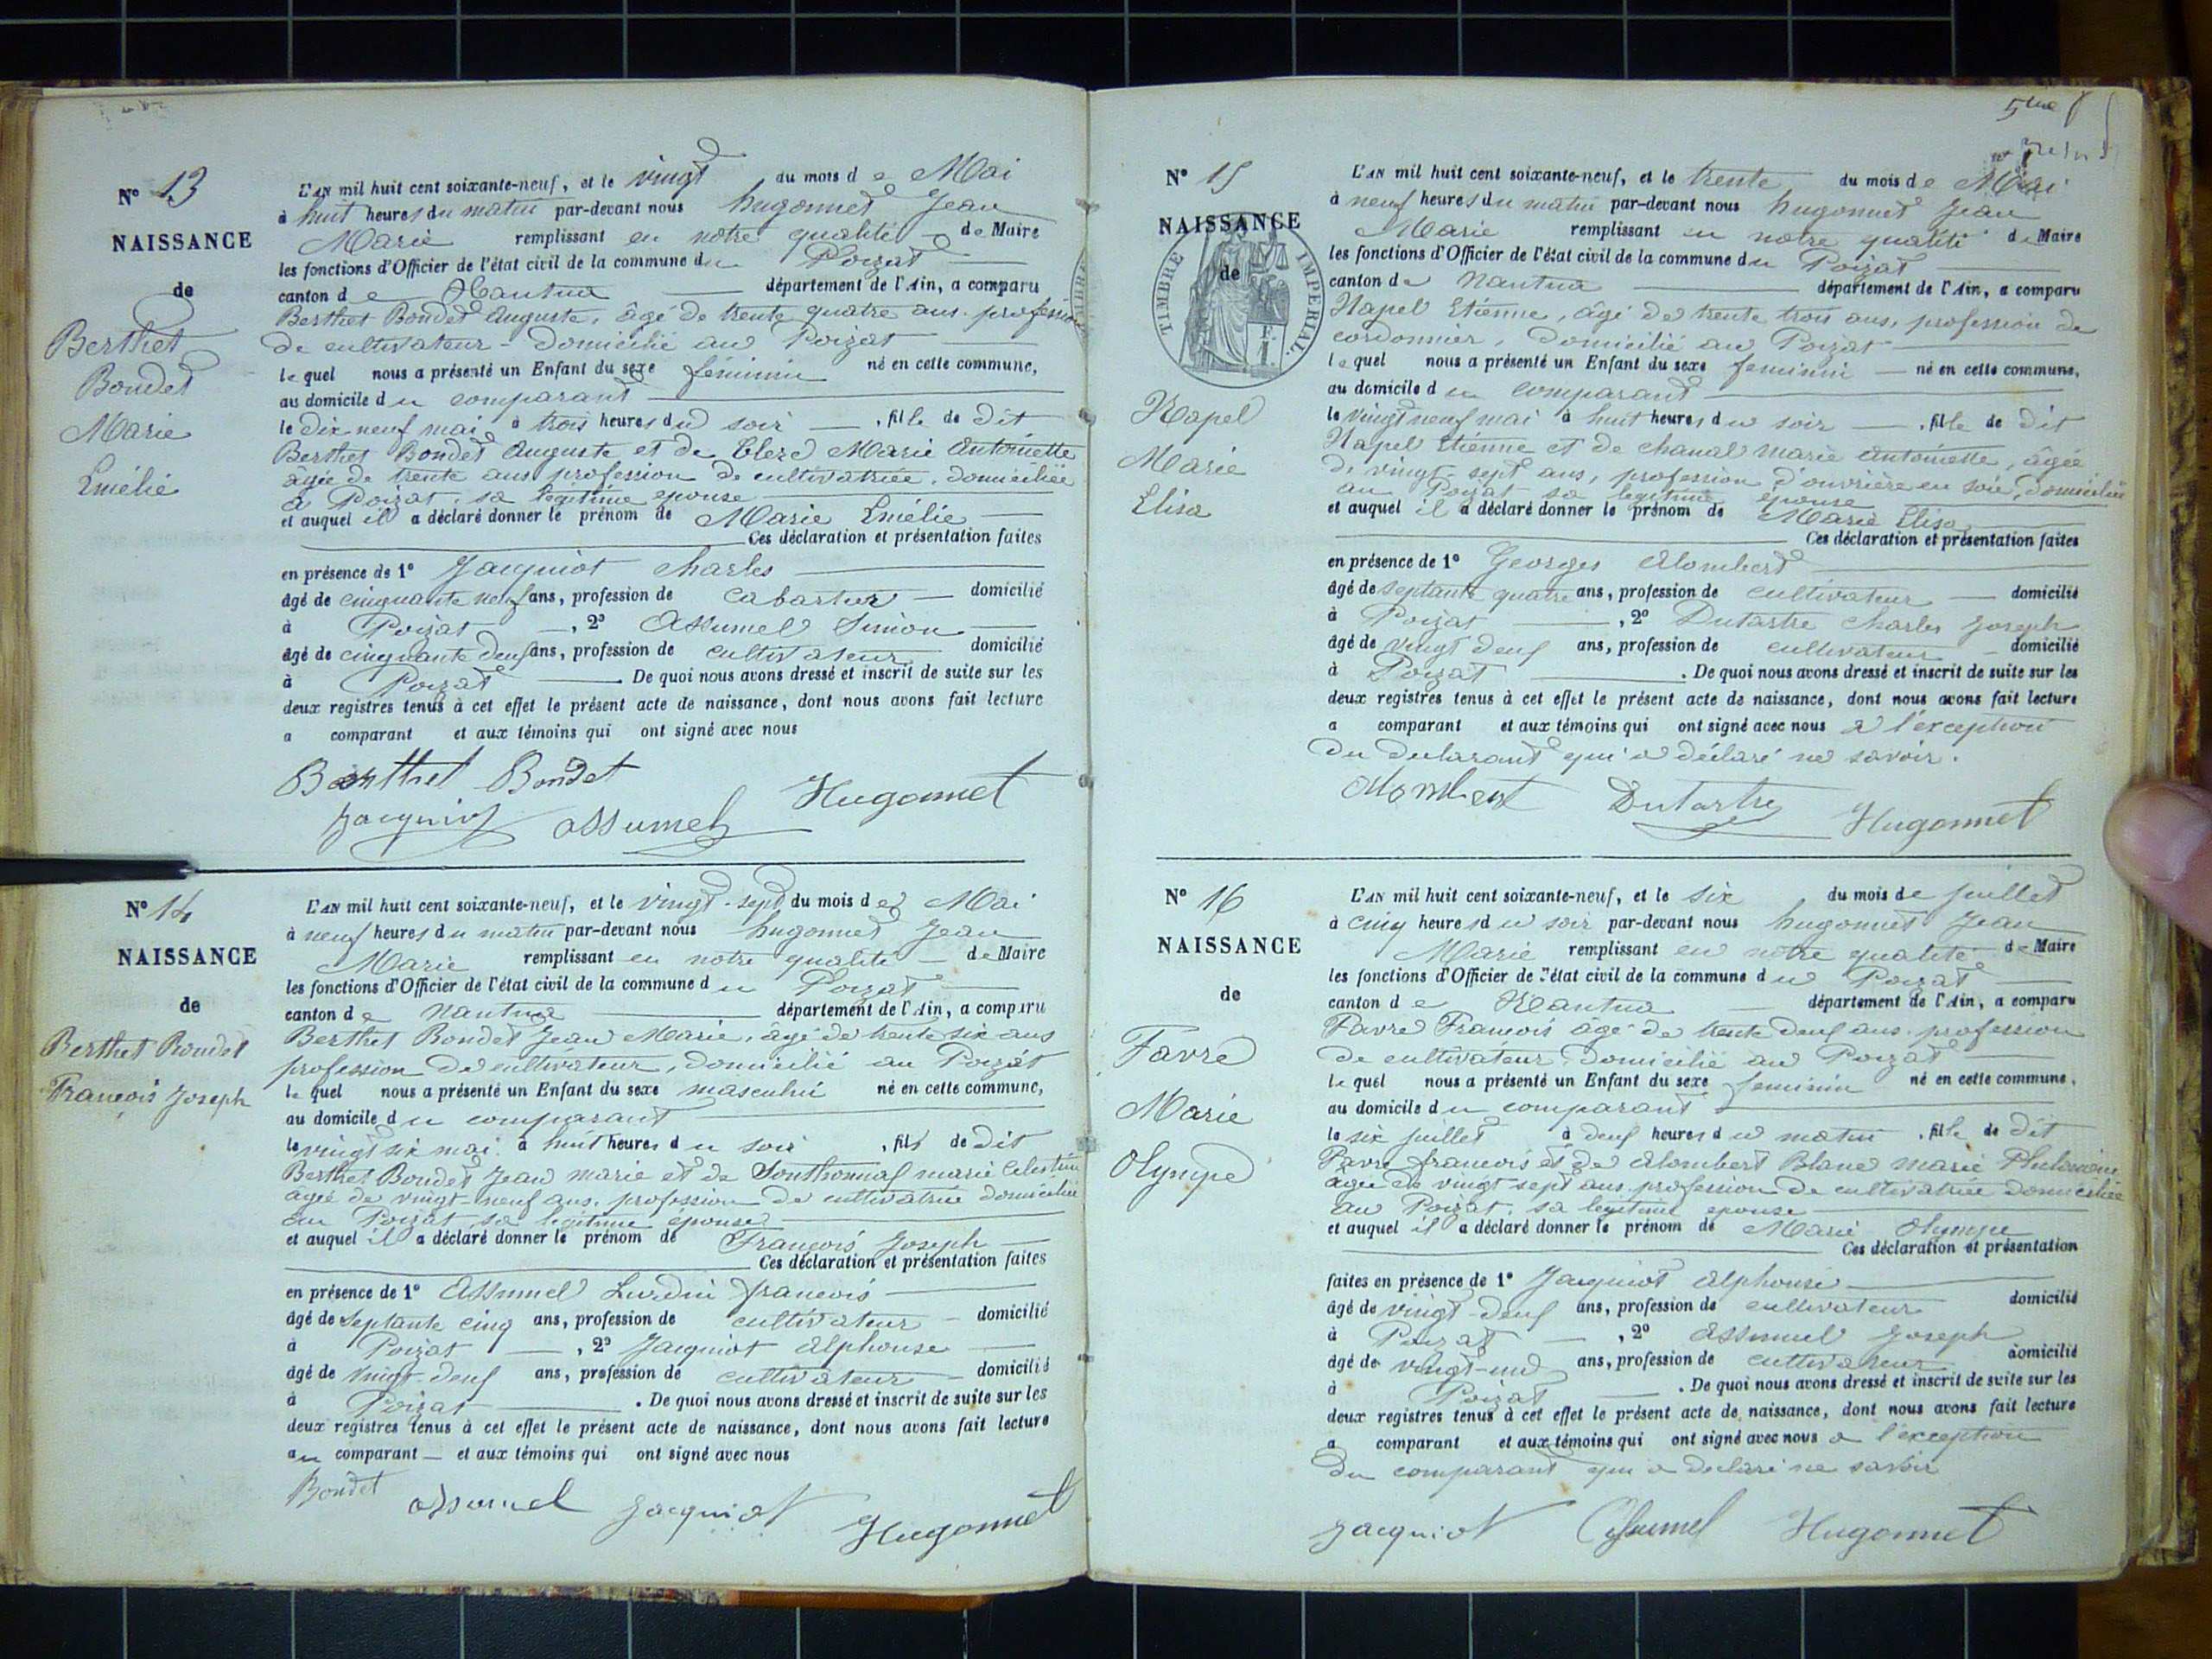 N° 13
NAISSANCE
de
Berthet
Bondet
Marie
Emélie
L'AN mil huit cent soixante-neuf, et le vingt du mois de Mai
à huit heures du matin par-devant nous hugonnet Jean
Marie remplissant en notre qualité de Maire
les fonctions d'Officier de l'état civil de la commune du Poizat
canton de Nantua département de l'Ain, a comparu
Berthet Bondet Auguste, âgé de trente quatre ans, profession
de cultivateur domicilié au Poizat
lequel nous a présenté un Enfant du sexe féminin né en cette commune,
au domicile du comparant
le dix neuf mai à trois heures du soir, fille de dit
Berthet Bondet Auguste et de Marie Antoinette
âgée de trente ans profession de cultivatrice, domiciliée
à Poizat, sa légitime épouse
et auquel il a déclaré donner le prénom de Marie Emélie
Ces déclaration et présentation faites
en présence de 1° Jacquiot Charles
âgé de cinquante neuf ans, profession de domicilié
à Poizat, 2° Assumel Simon
âgé de cinquante deux ans, profession de cultivateur domicilié
à Poizat. De quoi nous avons dressé et inscrit de suite sur les
deux registres tenus à cet effet le présent acte de naissance, dont nous avons fait lecture
a comparant et aux témoins qui ont signé avec nous
Berthet Bondet
Jacquiot assumel Hugonnet
N° 14
NAISSANCE
de
Berthet Bondet
François Joseph
L'AN mil huit cent soixante-neuf, et le vingt-sept du mois de Mai
à neuf heures du matin par-devant nous hugonnet Jean
Marie remplissant en notre qualité de Maire
les fonctions d'Officier de l'état civil de la commune du Poizat
canton de Nantua département de l'Ain, a comparu
Berthet Bondet Jean Marie, âgé de trente six ans
profession de cultivateur, domicilié au Poizat
lequel nous a présenté un Enfant du sexe masculin né en cette commune,
au domicile du comparant
le vingt six mai à huit heures du soir, fils de dit
Berthet Bondet Jean marie et de Sonthonnax marie Celestine
âgée de vingt-neuf ans, profession de cultivatrice domiciliée
au Poizat, sa légitime épouse
et auquel il a déclaré donner le prénom de François Joseph
Ces déclaration et présentation faites
en présence de 1° Assumel Lurdin françois
âgé de septante cinq ans, profession de cultivateur domicilié
à Poizat, 2° Jacquiot Alphonse
âgé de vingt-deux ans, profession de cultivateur domicilié
à Poizat. De quoi nous avons dressé et inscrit de suite sur les
deux registres tenus à cet effet le présent acte de naissance, dont nous avons fait lecture
au comparant et aux témoins qui ont signé avec nous
Bondet assumel Jacquiot Hugonnet
N° 15
NAISSANCE
de
TIMBRE IMPERIAL
Napel
Marie
Elisa
L'AN mil huit cent soixante-neuf, et le trente du mois de Mai
à neuf heures du matin par-devant nous hugonnet Jean
Marie remplissant en notre qualité de Maire
les fonctions d'Officier de l'état civil de la commune du Poizat
canton de Nantua département de l'Ain, a comparu
Napel Etienne, âgé de trente trois ans, profession de
cordonnier, domicilié au Poizat
lequel nous a présenté un Enfant du sexe feminin né en cette commune,
au domicile du comparant
le vingt neuf mai à huit heures du soir, fille de dit
Napel Etienne et de chanal marie antoinette, âgée
de vingt-sept ans, profession d'ouvrière en soie, domiciliée
au Poizat sa légitime épouse
et auquel il a déclaré donner le prénom de Marie Elisa
Ces déclaration et présentation faites
en présence de 1° Georges Alombert
âgé de septante quatre ans, profession de cultivateur domicilié
à Poizat, 2° Dutartre Charles Joseph
âgé de vingt deux ans, profession de cultivateur domicilié
à Poizat. De quoi nous avons dressé et inscrit de suite sur les
deux registres tenus à cet effet le présent acte de naissance, dont nous avons fait lecture
a comparant et aux témoins qui ont signé avec nous a l'exception
du declarant qui a déclaré ne savoir.
Alombert Dutartre Hugonnet
N° 16
NAISSANCE
de
Favre
Marie
Olympe
L'AN mil huit cent soixante-neuf, et le six du mois de juillet
à cinq heures du soir par-devant nous hugonnet Jean
Marie remplissant en notre qualité de Maire
les fonctions d'Officier de l'état civil de la commune du Poizat
canton de Nantua département de l'Ain, a comparu
Favre François âgé de trente deux ans, profession
de cultivateur, domicilié au Poizat
lequel nous a présenté un Enfant du sexe feminin né en cette commune,
au domicile du comparant
le six juillet à deux heures du matin, fille de dit
Favre françois et de Alombert Blanc marie Philomène
âgée de vingt sept ans profession de cultivatrice domiciliée
au Poizat, sa légitime épouse
et auquel il a déclaré donner le prénom de Marie Olympe
Ces déclaration et présentation
faites en présence de 1° Jacquiot Alphonse
âgé de vingt-deux ans, profession de cultivateur domicilié
à Poizat, 2° Assumel Joseph
âgé de vingt-un ans, profession de cultivateur domicilié
à Poizat. De quoi nous avons dressé et inscrit de suite sur les
deux registres tenus à cet effet le présent acte de naissance, dont nous avons fait lecture
a comparant et aux témoins qui ont signé avec nous a l'exception
du comparant qui a declaré ne savoir
Jacquiot Assumel Hugonnet